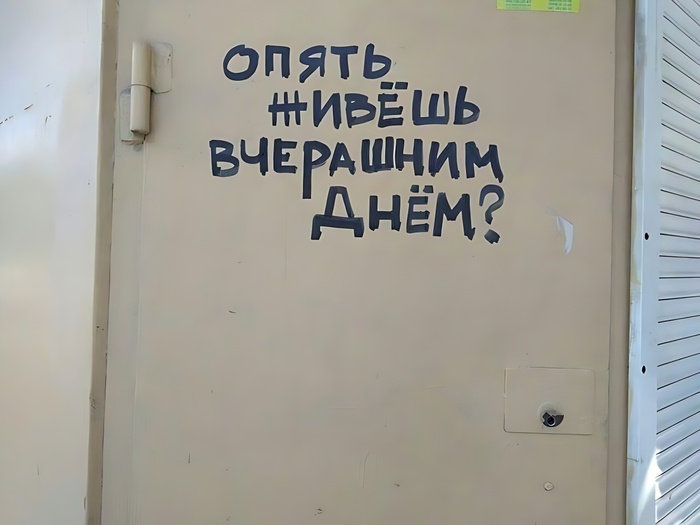 ОПЯТЬ
ЖИВЁШЬ
ВЧЕРАШНИМ
ДНЁМ?